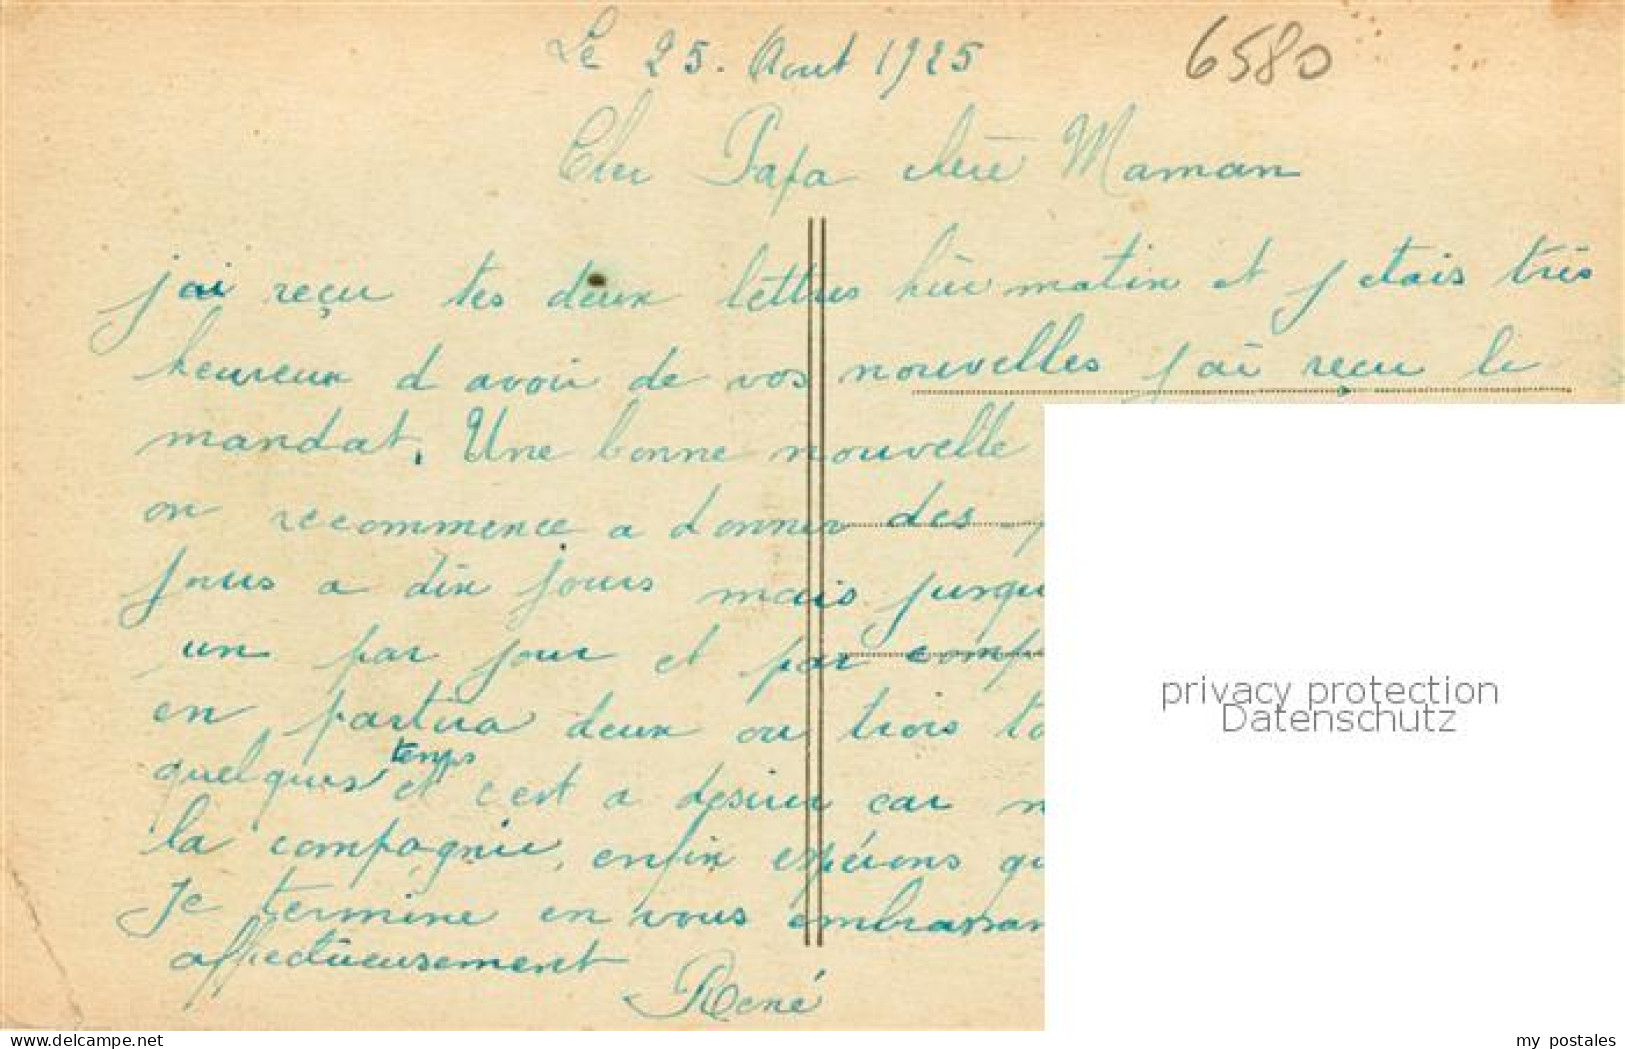 Le 25. Aout 1925
6580
Cher Papa chère Maman
j ai reçu tes deux lettres hier matin et j etais très
heureux d avoir de vos nouvelles j ai reçu le
mandat. Une bonne nouvelle
on recommence a donner des
jours a dix jours mais jusqu
un par jour et par comp
en partira deux ou trois to
quelques temps et c est a desirer car n
la compagnie, enfin espérons qu
Je termine en vous embrassan
affectueusement
René
privacy protection
Datenschutz
delcampe.net
my_postales